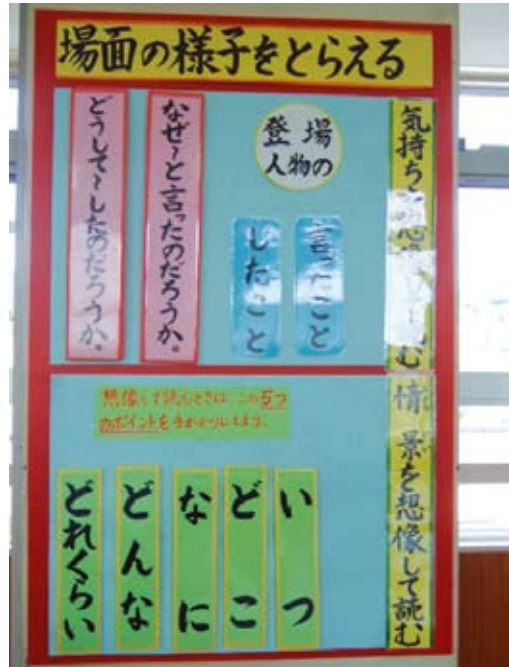 場面の様子をとらえる
気持ちを想像して読む
登場
人物の
言ったこと
したこと
なぜ〜と言ったのだろうか。
どうして〜したのだろうか。
情景を想像して読む
想像して読むときは、この5つ
のポイントを手がかりにしよう。
いつ
どこ
なに
どんな
どれくらい